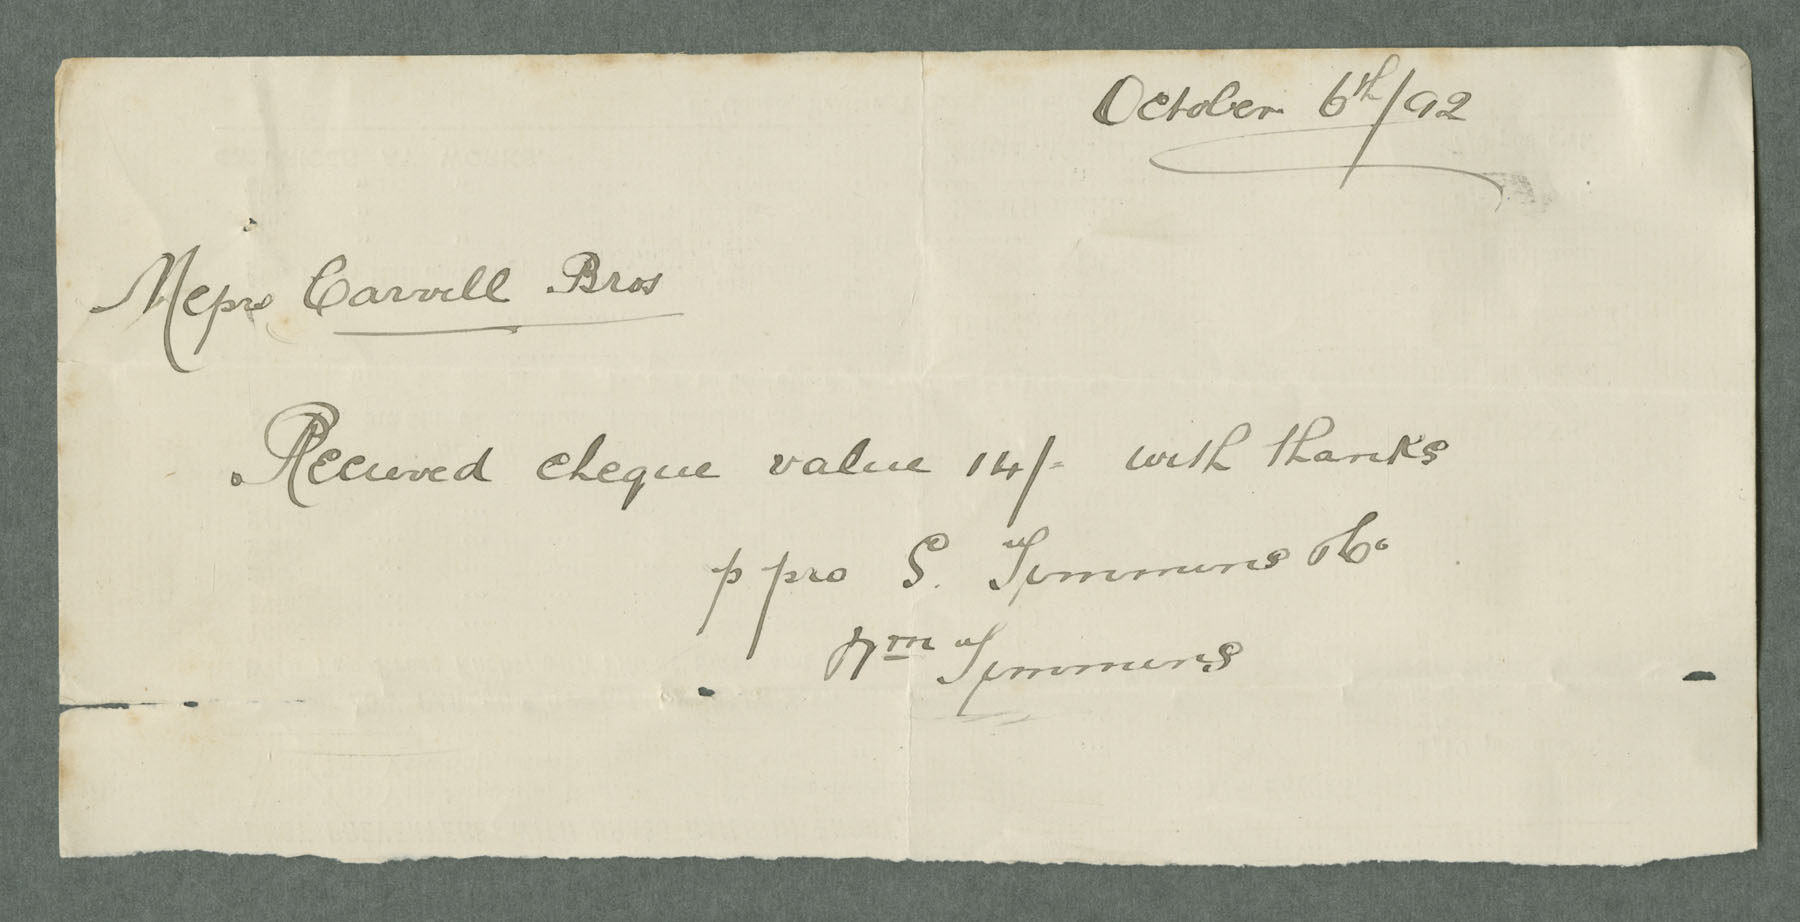 October 6th/92
Messrs Carvell Bros
Received cheque value 14/- with thanks
p pro S. Timmins & Co
Wm Timmins